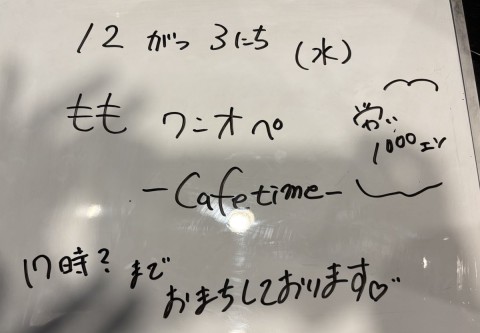 12 がつ 3にち (水)
もも ワニオペ
どりい
1000エン
-Cafe time-
17時? まで
おまちしております♡